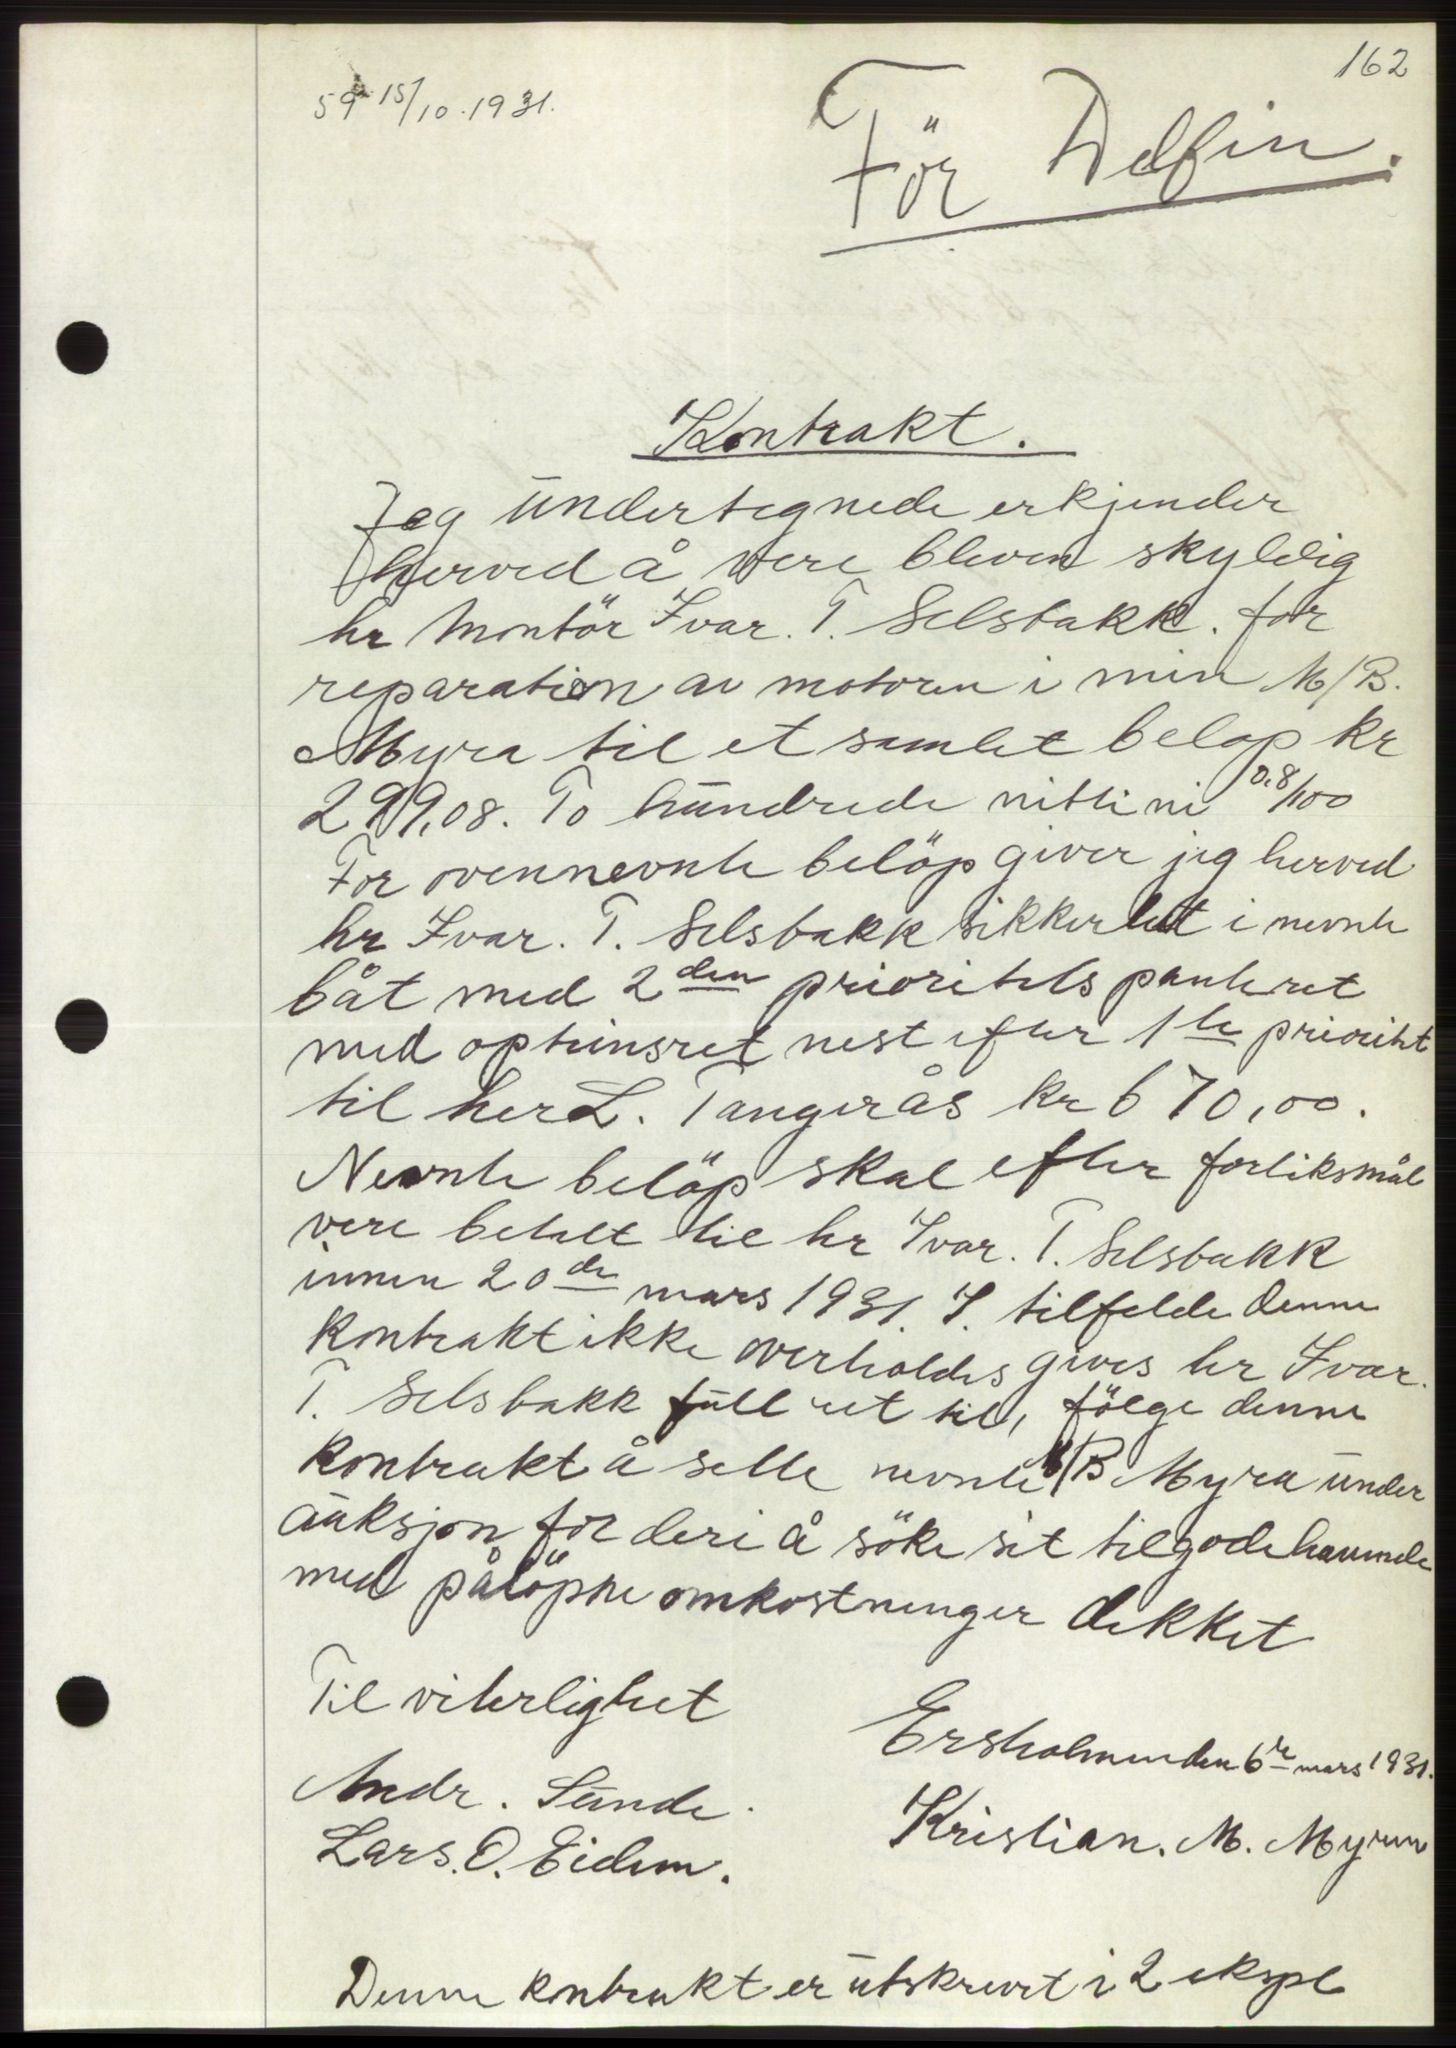 162
59 15/10.1931.
För Delfin.
Kontrakt.
Jeg undertegnede erkjender
herved å vere bleven skyldig
hr Montör Ivar. T. Selsbakk. for
reparation av motoren i min M/B.
Myra til et samlet belöp kr
299,08. To hundrede nitti ni 0.8/100
For ovennevnte belöp giver jeg herved
hr Ivar. T. Selsbakk sikkerhet i nevnte
båt med 2den prioritets panteret
med optrinsret nest efter 1te prioritet
til her L. Tangerås kr 670,00.
Nevnte belöp skal efter forliksmål
vere betalt til hr Ivar. T. Selsbakk
innen 20de mars 1931. I. tilfelde denne
kontrakt ikke overholdes gives hr Ivar.
T. Selsbakk full ret til, fölge denne
kontrakt å selle nevnte M/B Myra under
auksjon for deri å söke sit tilgodehavende
med pålöpne omkostninger dekket
Til viterlighet
Ersholmen den 6te mars 1931.
Andr. Sunde.
Kristian. M. Myren
Lars. O. Eidem.
Denne kontrakt er utskrevet i 2 ekspl